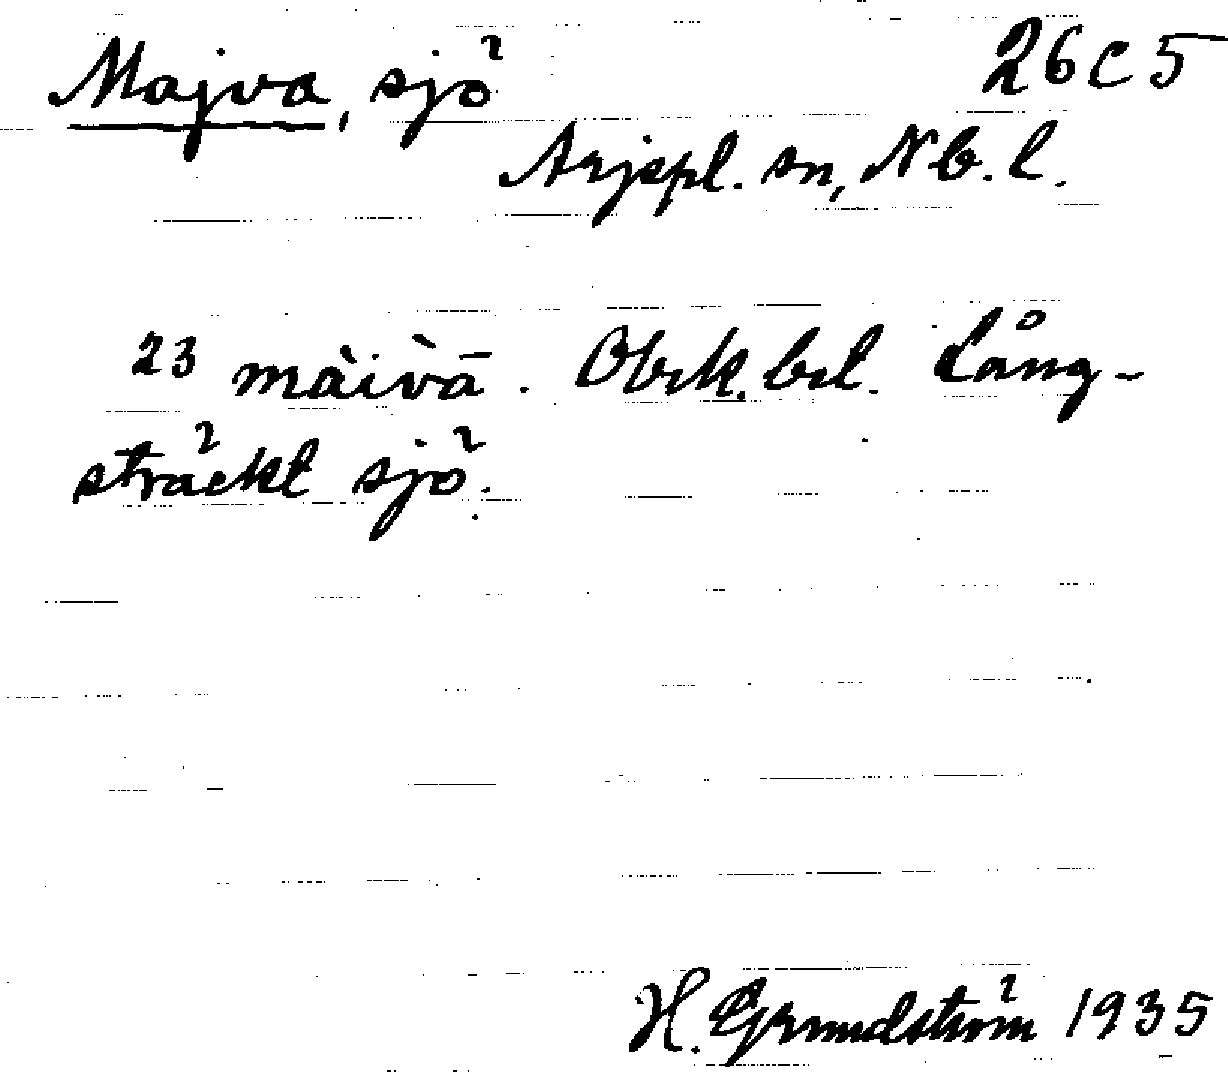 Majva, sjö 26 C 5
Arjepl. sn, Nb. l.
23 mài̯vā. Obek. bel. Lång-
sträckt sjö.
H. Grundström 1935